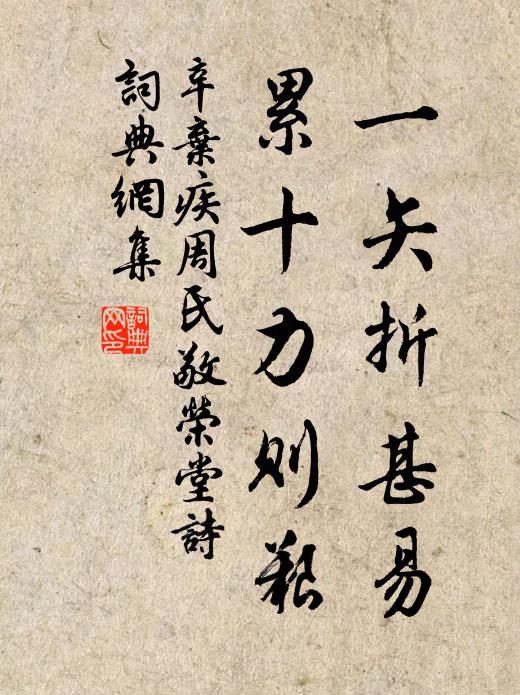 一矢折甚易
累十力则艱
辛棄疾周氏敬榮堂詩
詞典網集
詞典网印